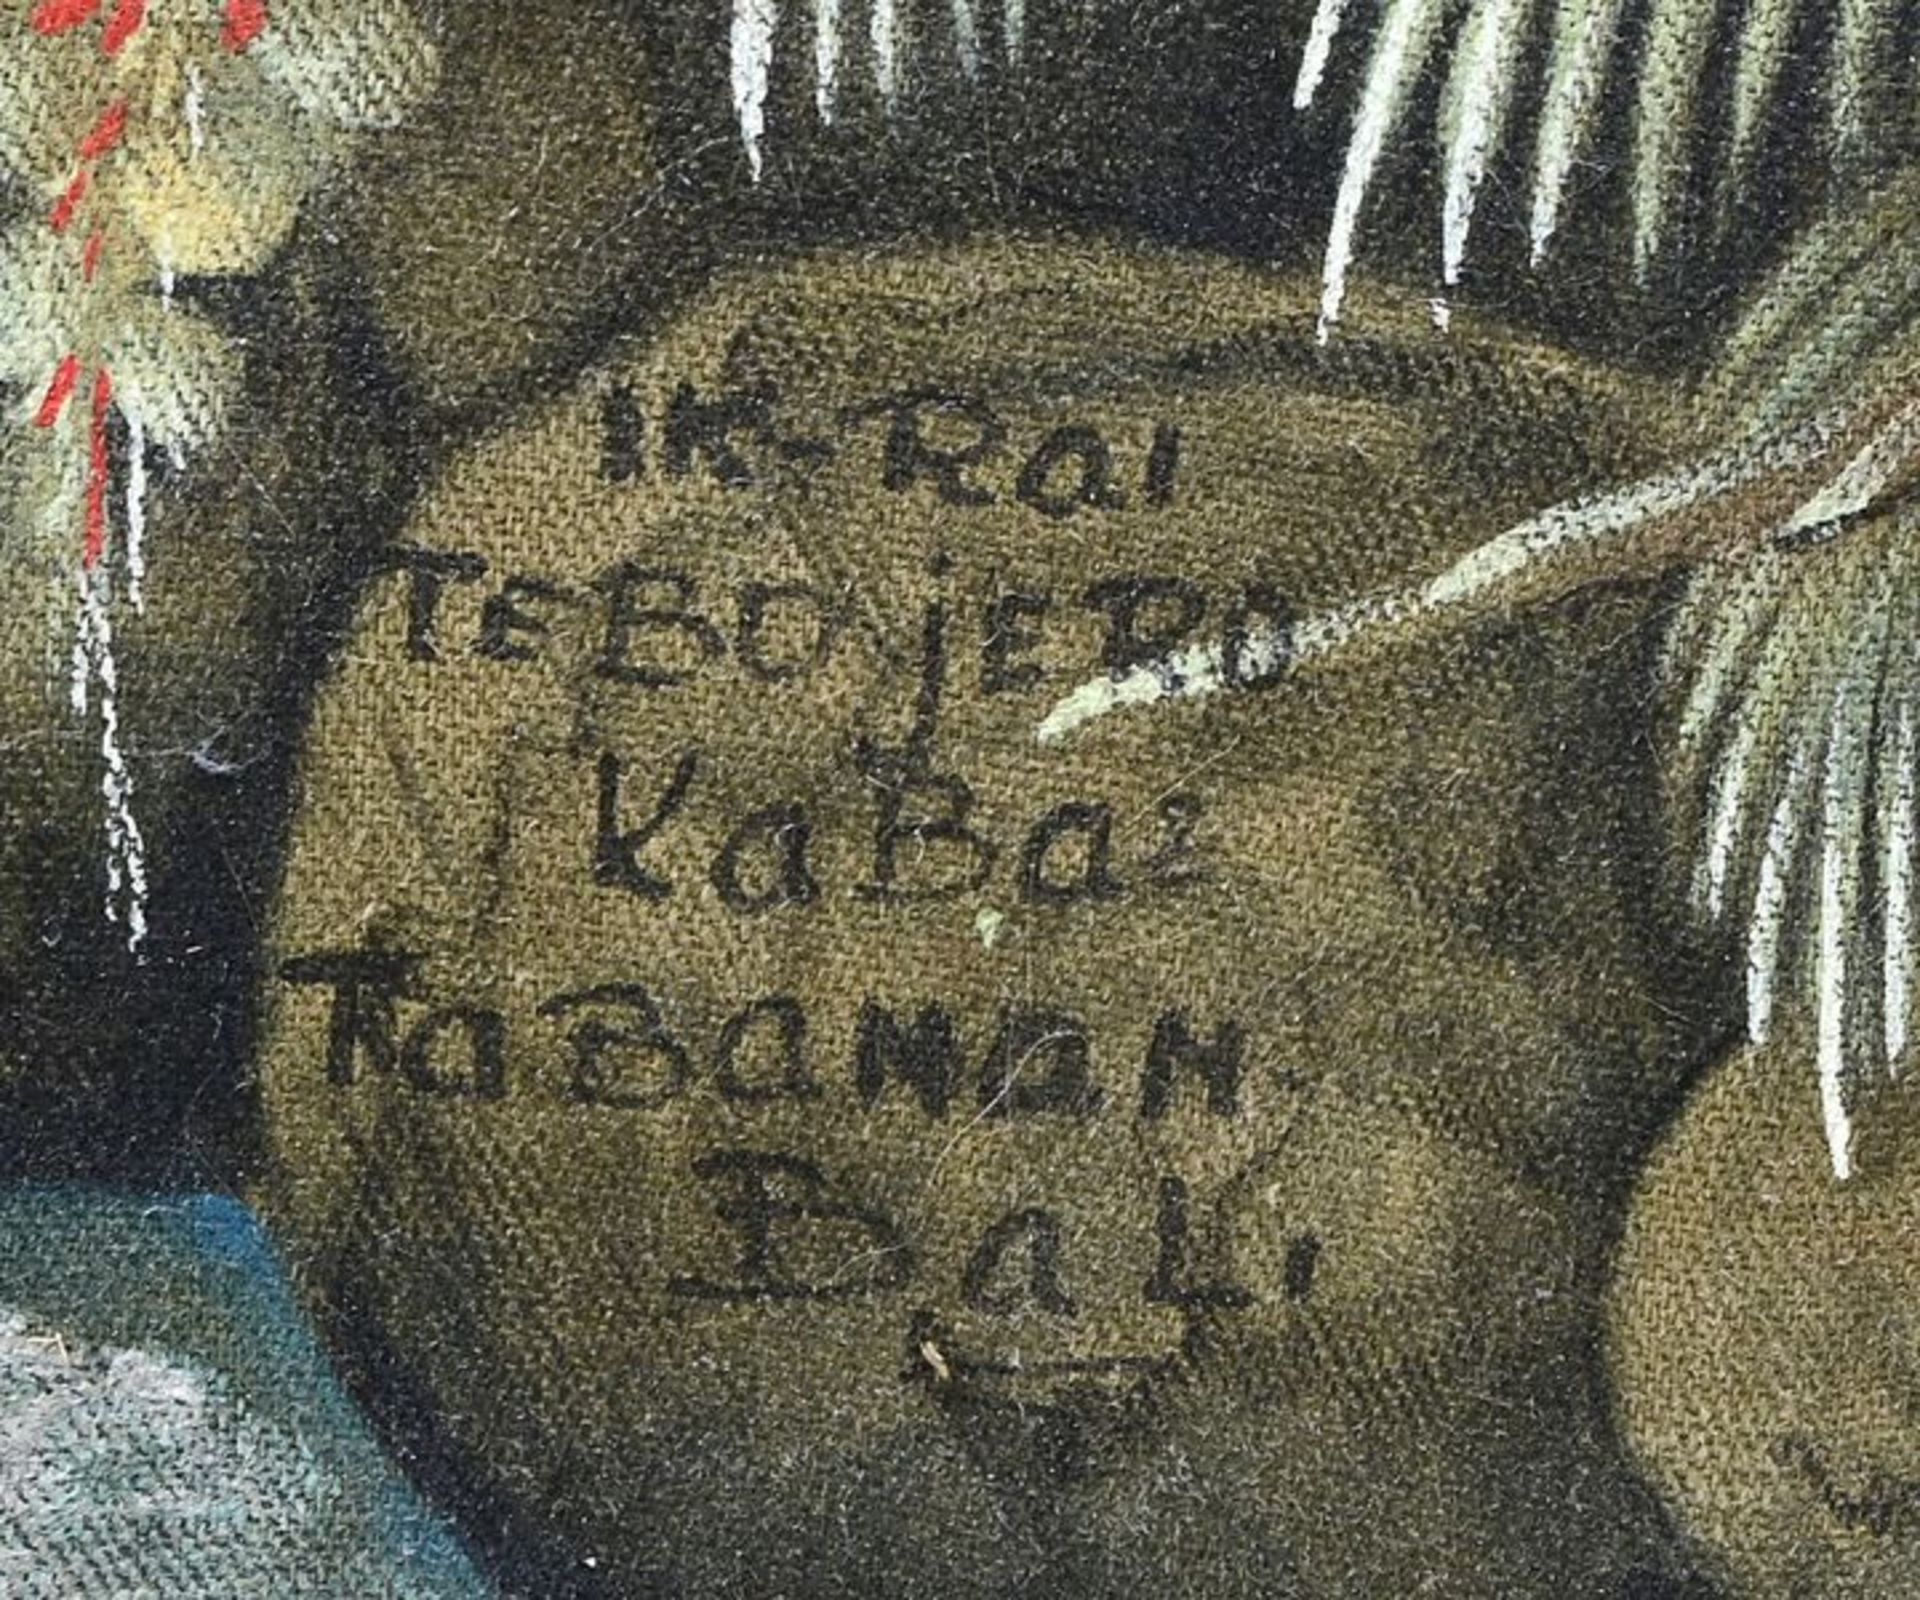 IK-Rai
TEBOjERO
KaBa2
TaBaNaN.
BaLi